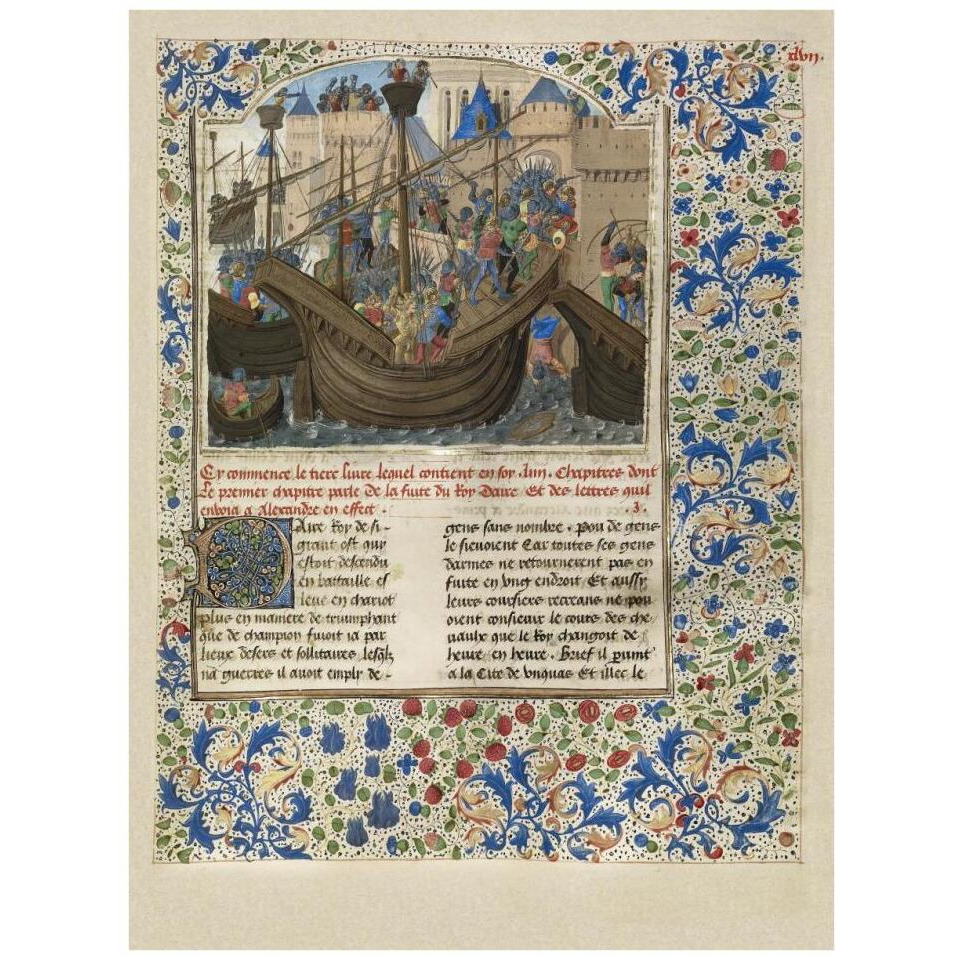 xlvij.
Cy commence le tiers livre lequel contient en soy .xiiii. Chapitres dont
Le premier chapitre parle de la fuite du Roy Daire Et des lettres quil
envoia a Alexandre en effect .
Aire Roy de si
grant ost quy
estoit descendu
en bataille es
leve en chariot
plus en maniere de triumphant
que de champion fuioit ia par
lieux desers et sollitaires lesqlz
na guerres il avoit emply de
gens sans nombre . Pou de gens
le sievoient Car toutes ses gens
darmes ne retournerent pas en
fuite en ung endroit Et aussy
leurs coursiers recreans ne pou
oient consievir le cours des che
vaulx que le Roy changoit de
heure en heure . Brief il parvint
a la Cite de vnquas Et illec le